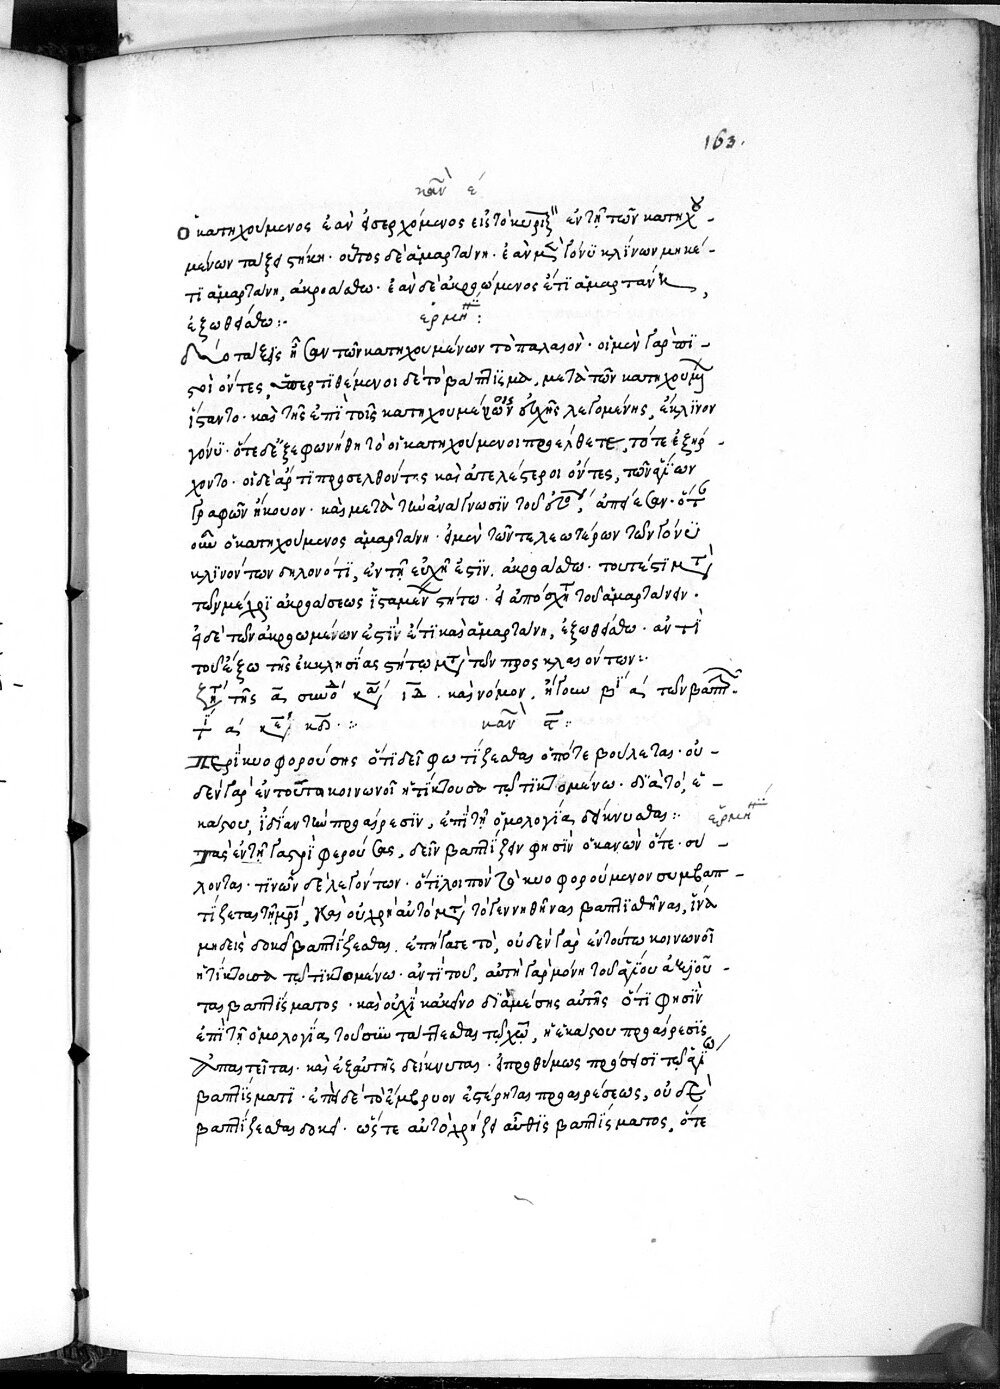 163.
καν ε
Ὁ κατηχούμενος ἐὰν εἰσερχόμενος εἰς τὸ κυριακ ἐν τῇ τῶν κατηχου-
μένων τάξει στήκῃ· οὗτος δὲ ἁμαρτάνῃ· ἐὰν μὲν γόνυ κλίνων μηκέ-
τι ἁμαρτάνῃ, ἀκροάσθω· ἐὰν δὲ ἀκροώμενος ἔτι ἁμαρτάνῃ,
ἐξωθείσθω:· ἑρμη:
δύο τάξεις ἦσαν τῶν κατηχουμένων τὸ παλαιόν· οἱ μὲν γὰρ πι-
στοὶ ὄντες, ὑπερτιθέμενοι δὲ τὸ βάπτισμα, μετὰ τῶν κατηχουμ
ἵσταντο· καὶ τῆς ἐπὶ τοῖς κατηχουμένοις εὐχῆς λεγομένης, ἔκλινον
γόνυ· ὅτε δὲ ἐξεφωνήθη τὸ οἱ κατηχούμενοι προέλθετε, τότε ἐξήρ-
χοντο· οἱ δὲ ἄρτι προσελθόντες καὶ ἀτελέστεροι ὄντες, τῶν ἁγίων
γραφῶν ἤκουον· καὶ μετὰ τὴν ἀνάγνωσιν τοῦ , ἀπῄεσαν· ὅτ
οὖν ὁ κατηχούμενος ἁμαρτάνῃ· εἰ μὲν τῶν τελεωτέρων τῶν γόνυ
κλινόντων δηλονότι, ἐν τῇ εὐχῇ ἐστιν. ἀκροάσθω· τουτέστι μετὰ
τῶν μέχρι ἀκροάσεως ἱσταμέν στήτω· εἰ ἀπόσχη τοῦ ἁμαρτάνειν·
εἰ δὲ τῶν ἀκροωμένων ἐστὶν ἔτι καὶ ἁμαρτάνῃ, ἐξωθείσθω· ἀντὶ
τοῦ ἔξω τῆς ἐκκλησίας στήτω μετὰ τῶν προσκλαιόντων:·
ζτ τῆς α συνό κα ιδ. καὶ νόμον. ἤγουν βι α τῶν βαπτ
κε κδ·:· καν ϛ:·
Περὶ κυοφορούσης ὅτι δεῖ φωτίζεσθαι ὁπότε βούλεται· οὐ-
δὲν γὰρ ἐν τούτω κοινωνεῖ ἡ τίκτουσα τῷ τικτομένω· διὰ τὸ, ἑ-
κάστου, ἰδίαν τὴν προαίρεσιν, ἐπὶ τῇ ὁμολογία δείκνυσθαι:· ἑρμη
Τὰς ἐν τῇ γαστρὶ φερούσας, δεῖν βαπτίζειν φησὶν ὁ κανὼν ὅτε· βού-
λονται· τινῶν δὲ λεγόντων· ὅτι λοιπὸν τὸ κυοφορούμενον συμβαπ-
τίζεται τῇ μρι, καὶ οὐ χρὴ αὐτὸ μετὰ τὸ γεννηθῆναι βαπτισθῆναι, ἵνα
μὴ δεὶς δοκεῖ βαπτίζεσθαι. ἐπήγαγε τὸ, οὐδὲν γὰρ ἐν τούτω κοινωνεῖ
ἡ τίκτουσα τῷ τικτομένω· ἀντὶ τοῦ, αὐτὴ γὰρ μόνη τοῦ ἁγίου ἀξιοῦ-
ται βαπτίσματος· καὶ οὐχὶ κἀκεῖνο διὰ μέσης αὐτῆς ὅτι φησὶν
ἐπὶ τῇ ὁμολογία τοῦ συντάττεσθαι τῷ χῶ, ἡ ἑκάστου προαίρεσις
ἀπαιτεῖται· καὶ ἐξ αὐτῆς δείκνυται· εἰ προθύμως πρόσεισι τῷ ἁγίω
βαπτίσματι· ἐπεὶ δὲ τὸ ἔμβρυον ἐστέρηται προαιρέσεως, οὐδὲ
βαπτίζεσθαι δοκεῖ· ὥστε αὐτὸ χρήζει αὖθις βαπτίσματος, ὅτε